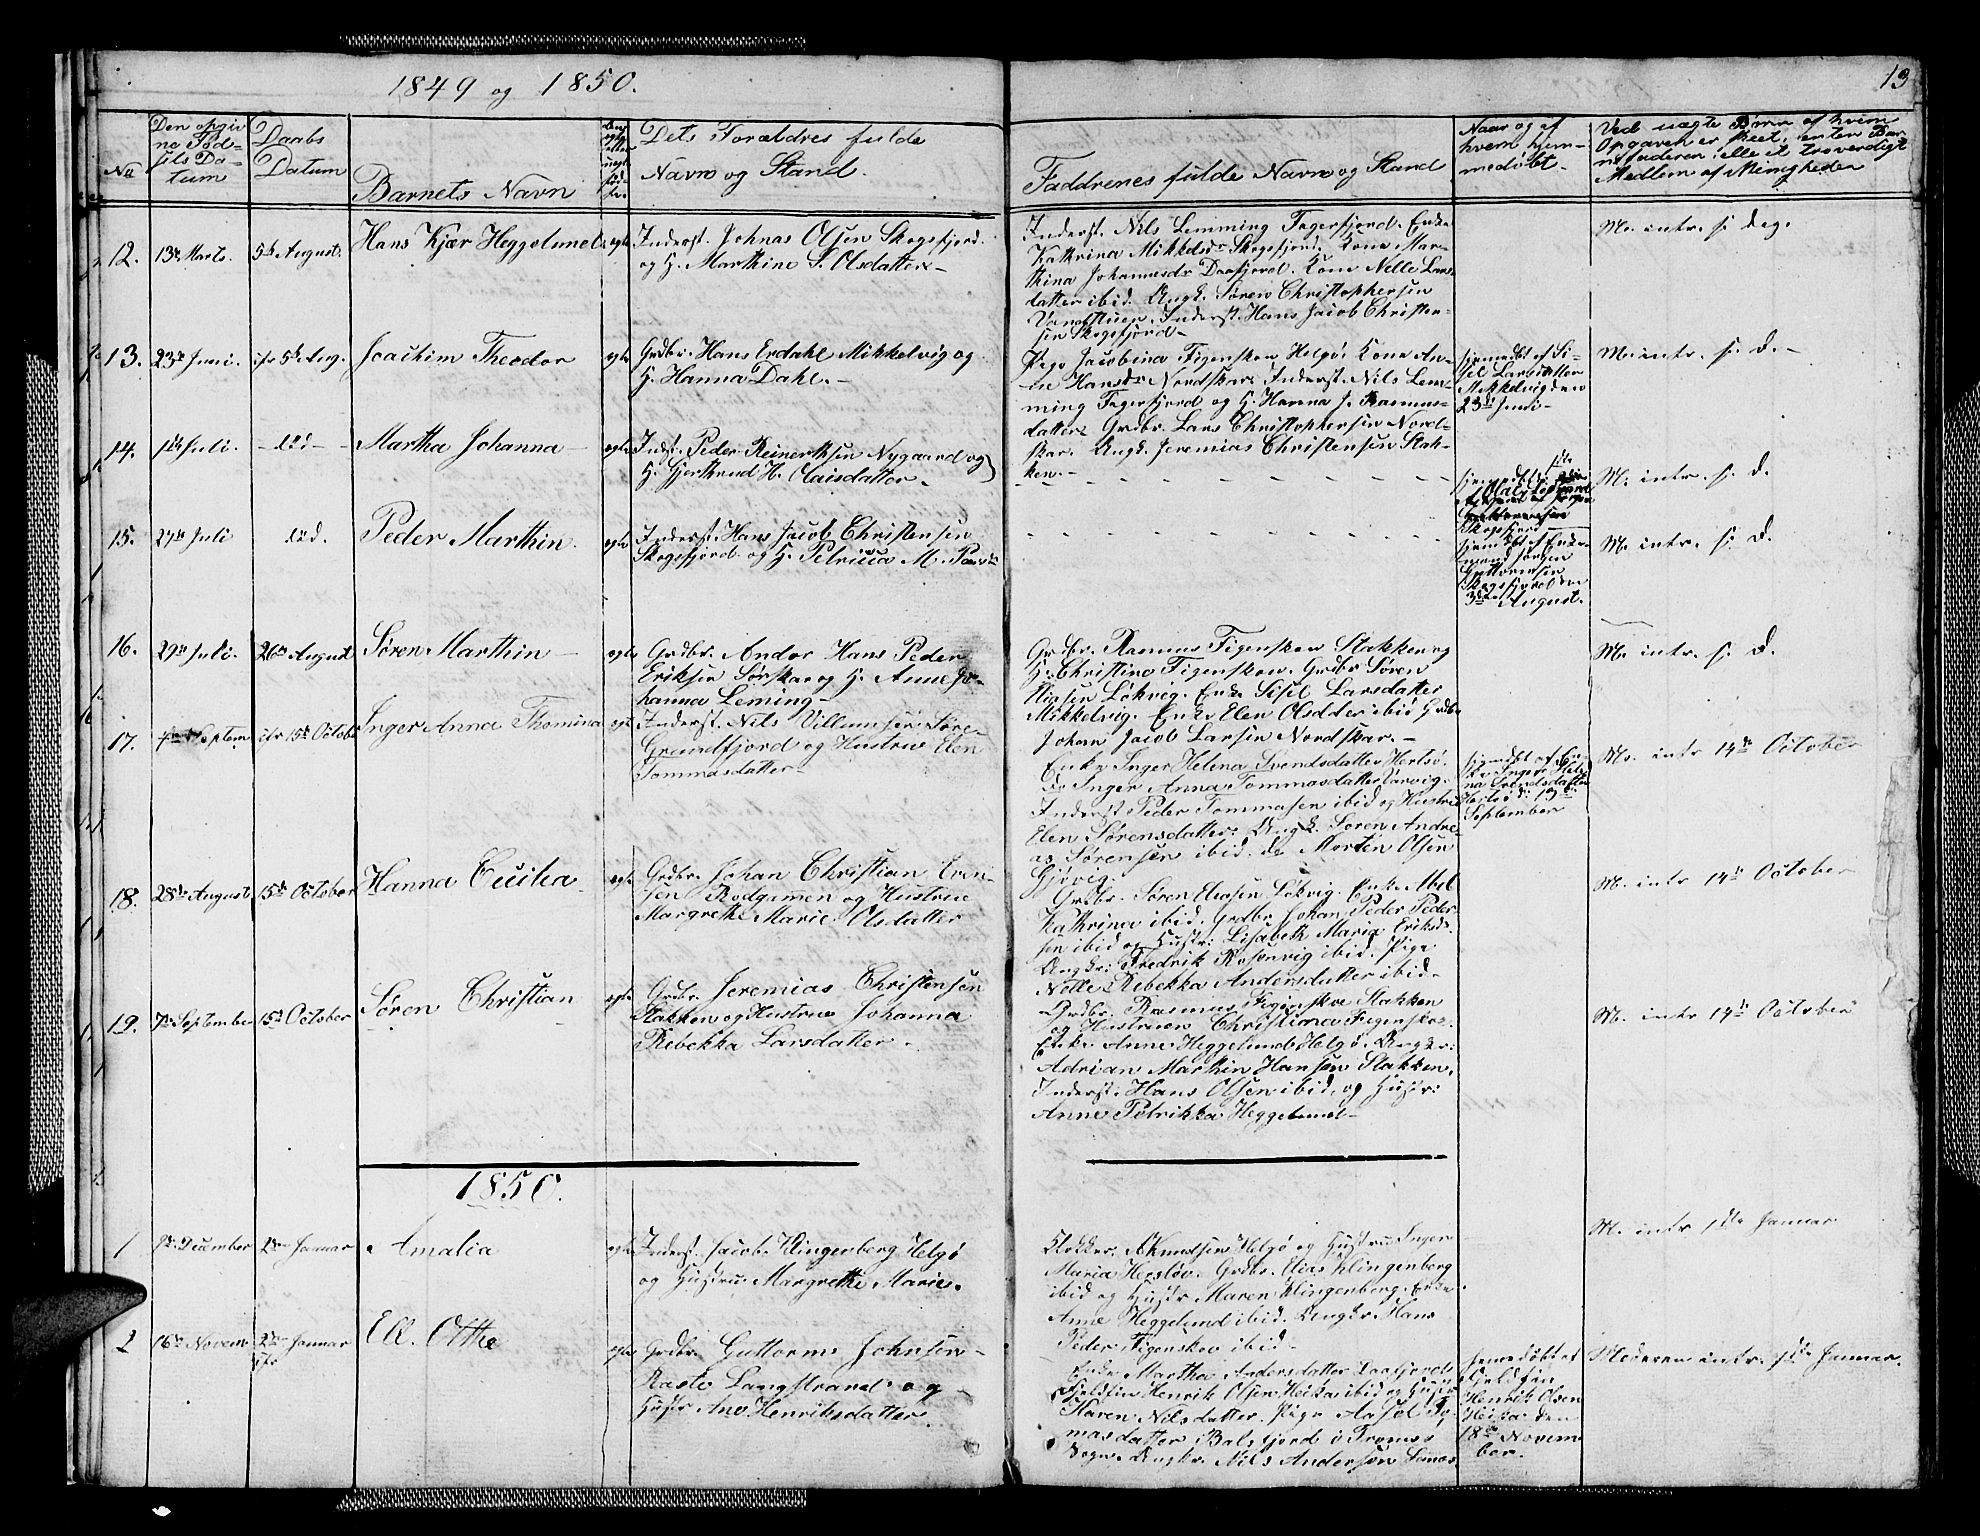 1849 og 1850.
13
No
Den opgiv
ne Fød-
sels Da-
tum
Daabs
Datum
Barnets Navn
Dets Forældres fulde
Navn og Stand.
Faddrenes fulde Navn og Stand
Naar og af
hvem hjem-
medøbt.
Ved uægte Børn af hvem
Opgaven er skeet, enten Bar-
nefaderen eller et troverdigt
Medlem af Menigheden
12.
13de Marts.
5te August.
Hans Kjær Heggelund
egte
Inderst. Johnas Olsen Skogsfjord.
og H. Marthine S. Olsdatter
Inderst. Nils Lemming Fagerfjord. Enke
Kathrina Mikkelsdr Skogsfjord. Kone Mar-
thina Johannesdr Daafjord. Kone Nelle Lars-
datter ibid. Ungk. Søren Christophersen
Vandstuen. Inderst. Hans Jacob Christen-
sen Skogsfjord
M. intr. s. Dag.
13.
23de Juni.
5te Aug.
Joachim Theodor
egte
Grdbr. Hans Erdahl Mikkelvig og
H. Hanna Dahl.
Pige Jacobina Figenskou Helgø. Kone An-
en Hansdr Nordskar. Inderst. Nils Lem-
ming Fagerfjord og H. Hanna J. Rasmus-
datter. Grdbr. Lars Christophersen Nord-
skar. Ungk. Jeremias Christensen Stak-
ken.
hjemedbt af Si-
sel Larsdatter
Mikkelvig den
23de Juni
M. intr. s. D.
14.
1ste Juli.
Martha Johanna
egte
Indst. Peder Reinertsen Nygaard og
H. Hjerthrud H. Claisdatter.
M. intr. s. D.
15.
27de Juli
Peder Marthin.
egte
Inderst. Hans Jacob Christensen
Skogsfjord. og H. Petricca M.
Skogsfjord
hjemdbt af Enke-
mand Jørgen
Guttormsen
Skogsfjord den
3die August.
M. intr. s. D.
16.
29de Juli.
26de August
Søren Marthin
egte
Grdbr. Andor Hans Peder
Eriksen Sørskar og H. Anne Jo-
hanna Leming
Grdbr. Rasmus Figenskou Stakken og
H. Christine Figenskou. Grdbr Søren
Løkvig. Enke Sisel Larsdatter
Mikkelvig. Enke Elen Olsdatter ibid Grdbr
Johan Jacob Larsen Nordskar.
M. intr. s. D.
17.
Septem
15de Octobr
Inger Anna Thomina
egte
Inderst. Nils Villumsen Søre-
Grundfjord og Hustrue Elen
Tommasdatter
Enke Inger Helena Svendsdatter Hersø.
do Inger Anna Tommasdatter Varvig.
Inderst. Peder Tommasen ibid og Hustrue
Elen Sørensdatter. Ungk. Søren Andre-
as Sørensen ibid. do Morten Olsen
Gjøvig.
hjemdbt af En-
ke Inger Hele-
na Svendsdatter
Hersø d: 13de
September
M. intr 14de October
18.
28de August
15de October
Hanna Cecilia
egte
Grdbr. Johan Christian Even-
sen Rødgimen og Hustrue
Margrethe Marie Olsdatter
Grdbr. Søren Løkvig. Enke Abel
Kathrina ibid. Grdbr Johan Peder Peder-
sen ibid og Hustr: Lisabeth Maria Eriksd.
Ungkr: Fredrik Rosenvig ibid. Pige
Nelle Rebekka Andersdatter ibid.
M. intr 14de October
19.
7de September
15de October
Søren Christian
egte
Grdbr. Jeremias Christensen
Stakken og Hustrue Johanna
Rebekka Larsdatter.
Grdbr. Rasmus Figenskou Stakken
og Hustruen Christiana Figenskou.
Enke Anne Heggelund Helgø. Ungkr:
Adrian Marthin Hansen Stakken.
Inderst. Hans Olsen ibid, og Hustr:
Anne Petrikka Heggelund
M. intr 14de October
1850.
1
9de December
2den Januar
Amalia
egte
Inderst. Jacob Klingenberg Helgø
og Hustru. Margrethe Marie.
Klokker. A Knudsen Helgø og Hustru Inger
Maria Hersløv. Grdbr. Elias Klingenberg
ibid og Hustr Maren Klingenberg. Enke
Anne Heggelund ibid. Ungkr Hans
Peder Figenskou ibid
M. intr 1ste Januar
2
16de Novem
2den Januar
Ell. Otthe
egte
Grdbr. Guttorm Johnsen
Raste Langstrand og
Hustr Ane Henriksdatter.
Enke Martha Andersdatter
Fjeldfin Henrik Olsen Heika ibid og Hustr
Karen Nilsdatter. Pige Aasel To-
masdatter Balsfjord i Tromsø
Sogn. Ungkr. Nils Andersen
hjemedøbt af
Fjeldfin
Henrik Olsen
Heika den
18de Novem
ber.
Moderen intr. 1ste Januar.